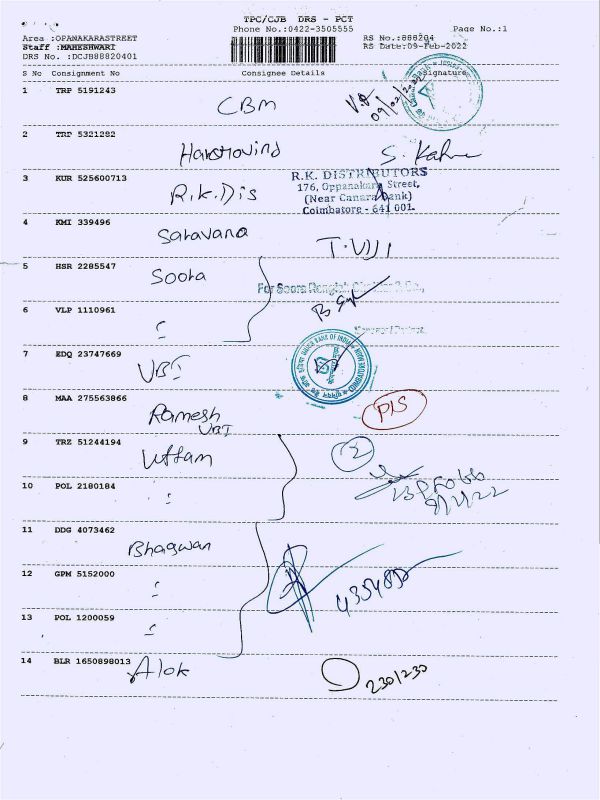 TPC/CJB DRS - PCT
Phone No.:0422-3505555
Page No.:1
Area :OPANAKARASTREET
RS No.:888204
Staff :MAHESHWARI
RS Date:09-Feb-2022
DRS No. :DCJB88820401
S No Consignment No Consignee Details Signature
1 TRP 5191243 CBM
09/02/2022
2 TRP 5321282 S. Kahn
3 KUR 525600713 R.K.Dis
R.K. DISTRIBUTORS
176, Oppanakara Street,
(Near Canara Bank)
Coimbatore - 641 001.
4 KMI 339496 Saravana T.VIJI
5 HSR 2285547 Soora
6 VLP 1110961 "
7 EDQ 23747669 UBI
8 MAA 275563866 Ramesh PLS
UBI
9 TRZ 51244194 Uttam 2
10 POL 2180184 "
9/2/22
11 DDG 4073462 Bhagwan
12 GPM 5152000 "
4354890
13 POL 1200059 "
14 BLR 1650898013 Alok
230/230